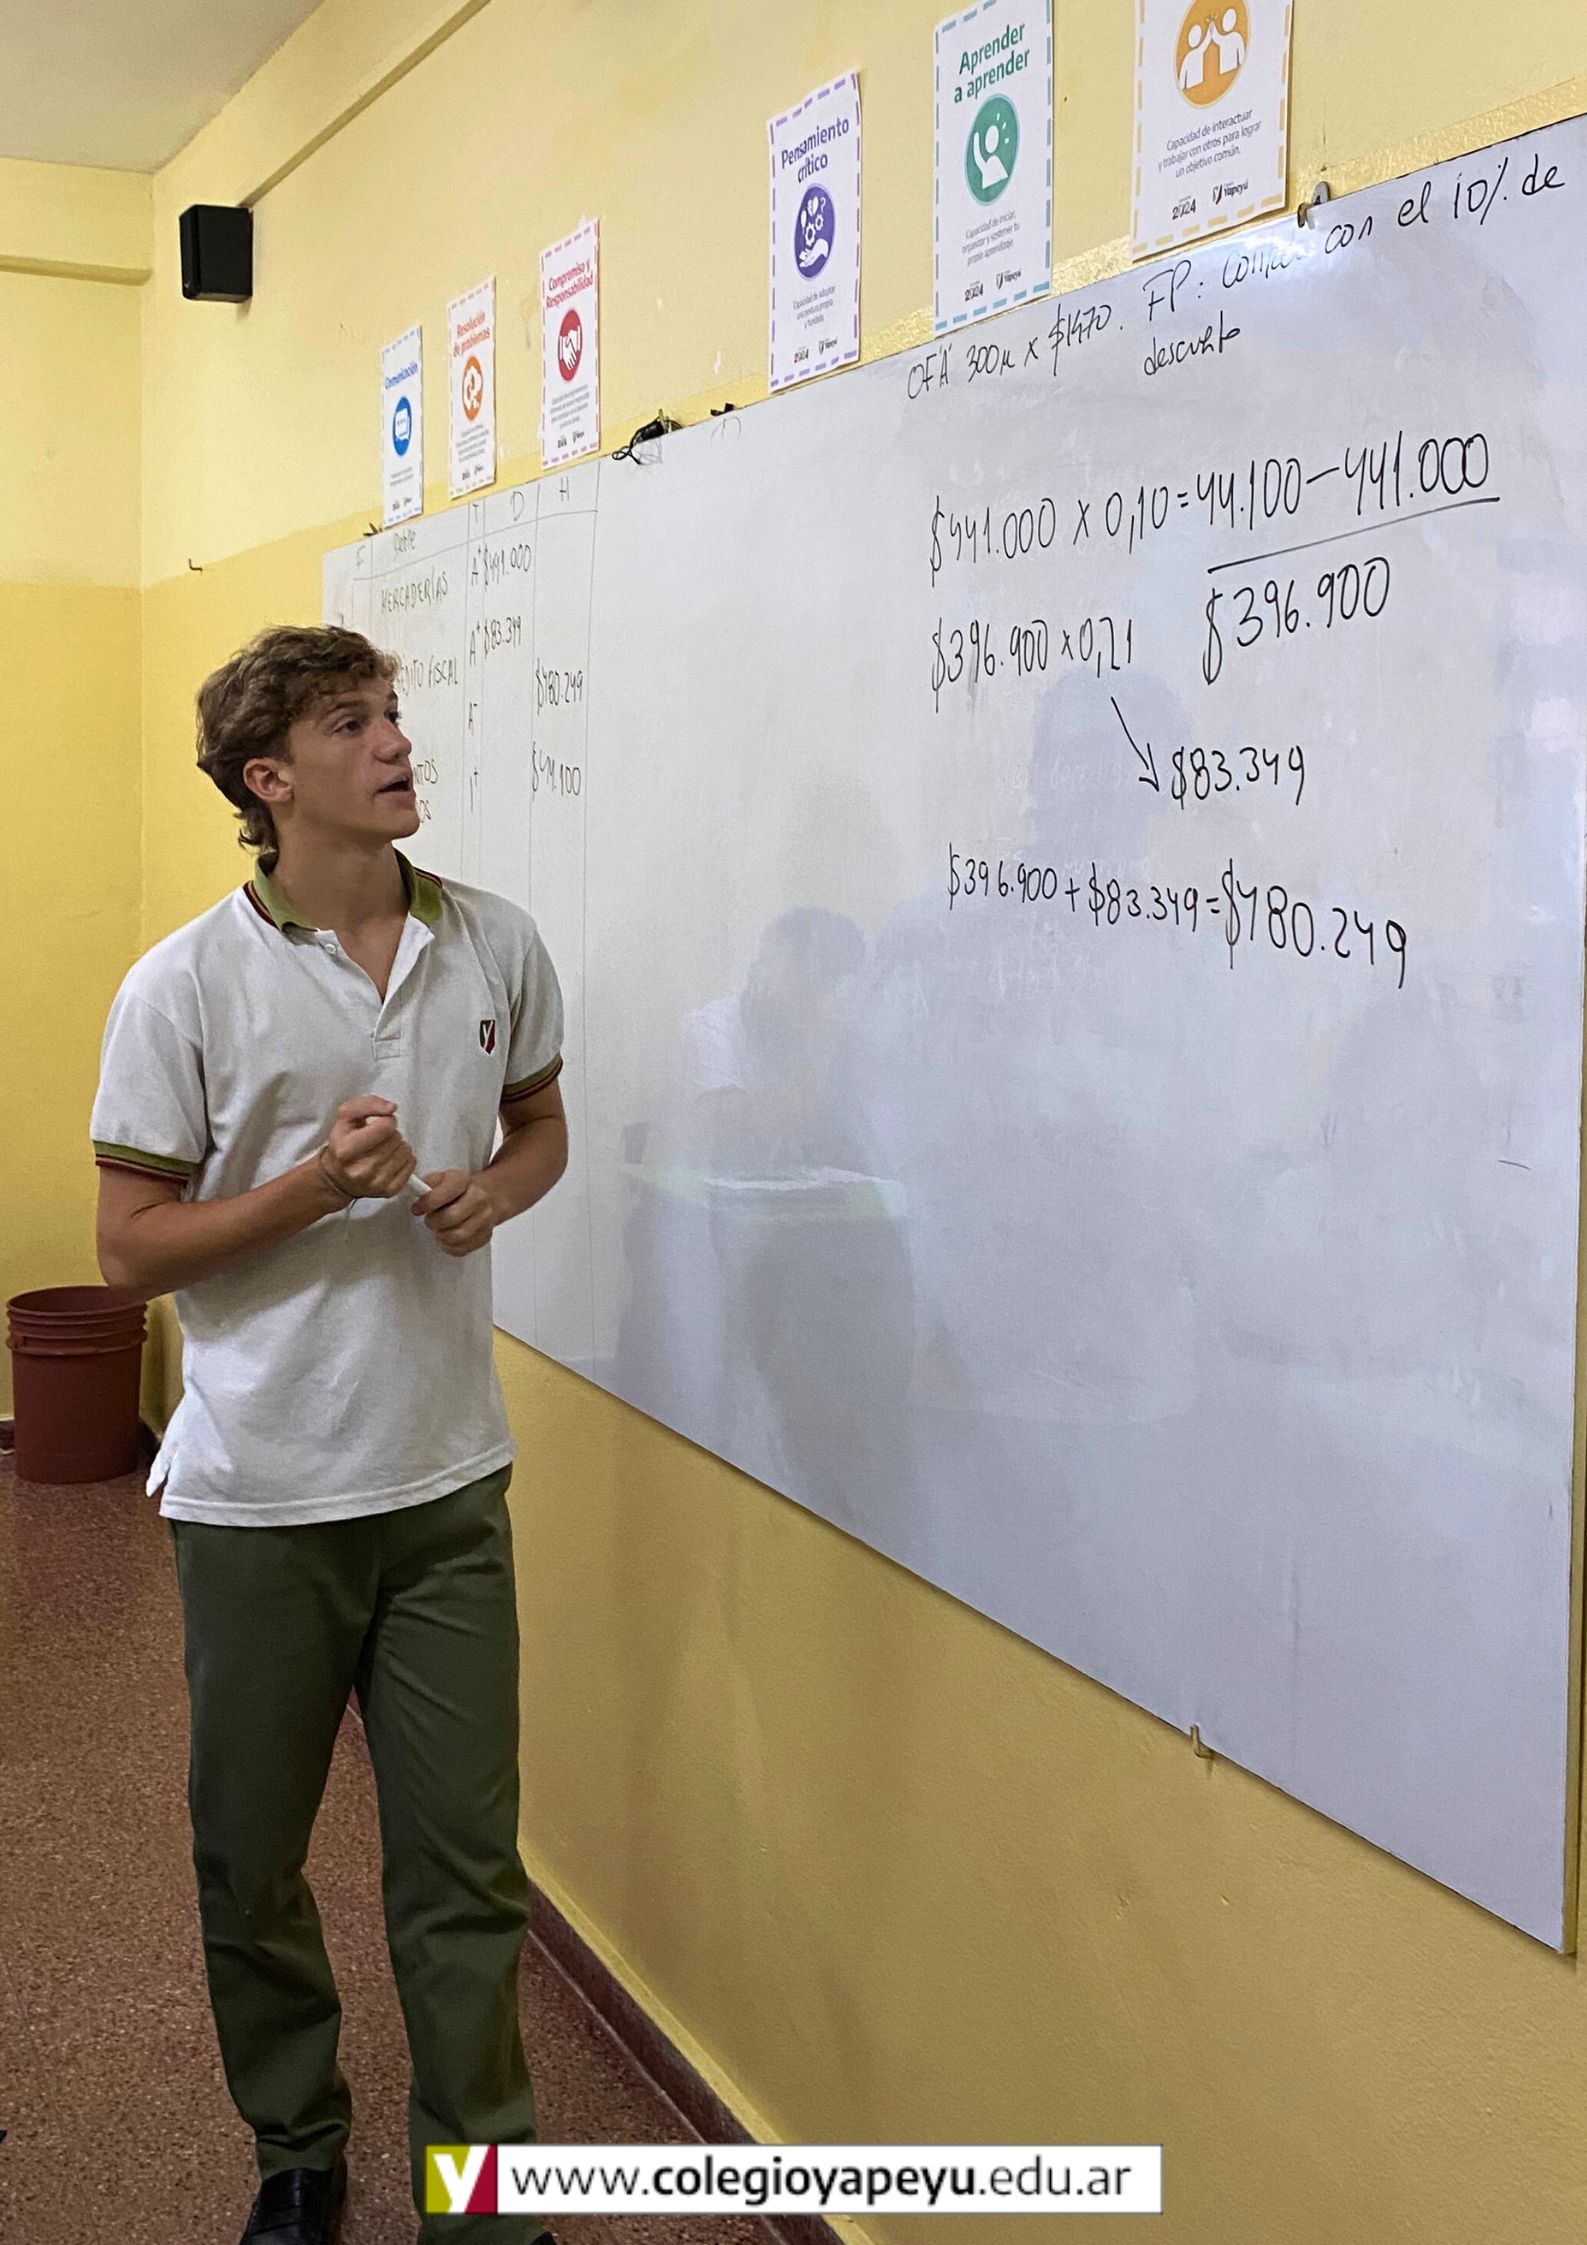 Comunicación
Resolución
de problemas
Compromiso y
Responsabilidad
Pensamiento
crítico
Capacidad de adoptar
una postura propia
y fundada.
2024
Yapeyú
Aprender
a aprender
Capacidad de iniciar,
organizar y sostener tu
propio aprendizaje.
2024
Yapeyú
Capacidad de interactuar
y trabajar con otros para lograr
un objetivo común.
2024
Yapeyú
D H
MERCADERÍAS A+ $441.000
FISCAL A+ $83.349
A- $480.249
$44.100
300u x $1470. FP: con el 10% de
descuento
$441.000 x 0,10 = 44.100 - 441.000
$396.900
$396.900 x 0,21
$83.349
$396.900 + $83.349 = $480.249
y www.colegioyapeyu.edu.ar